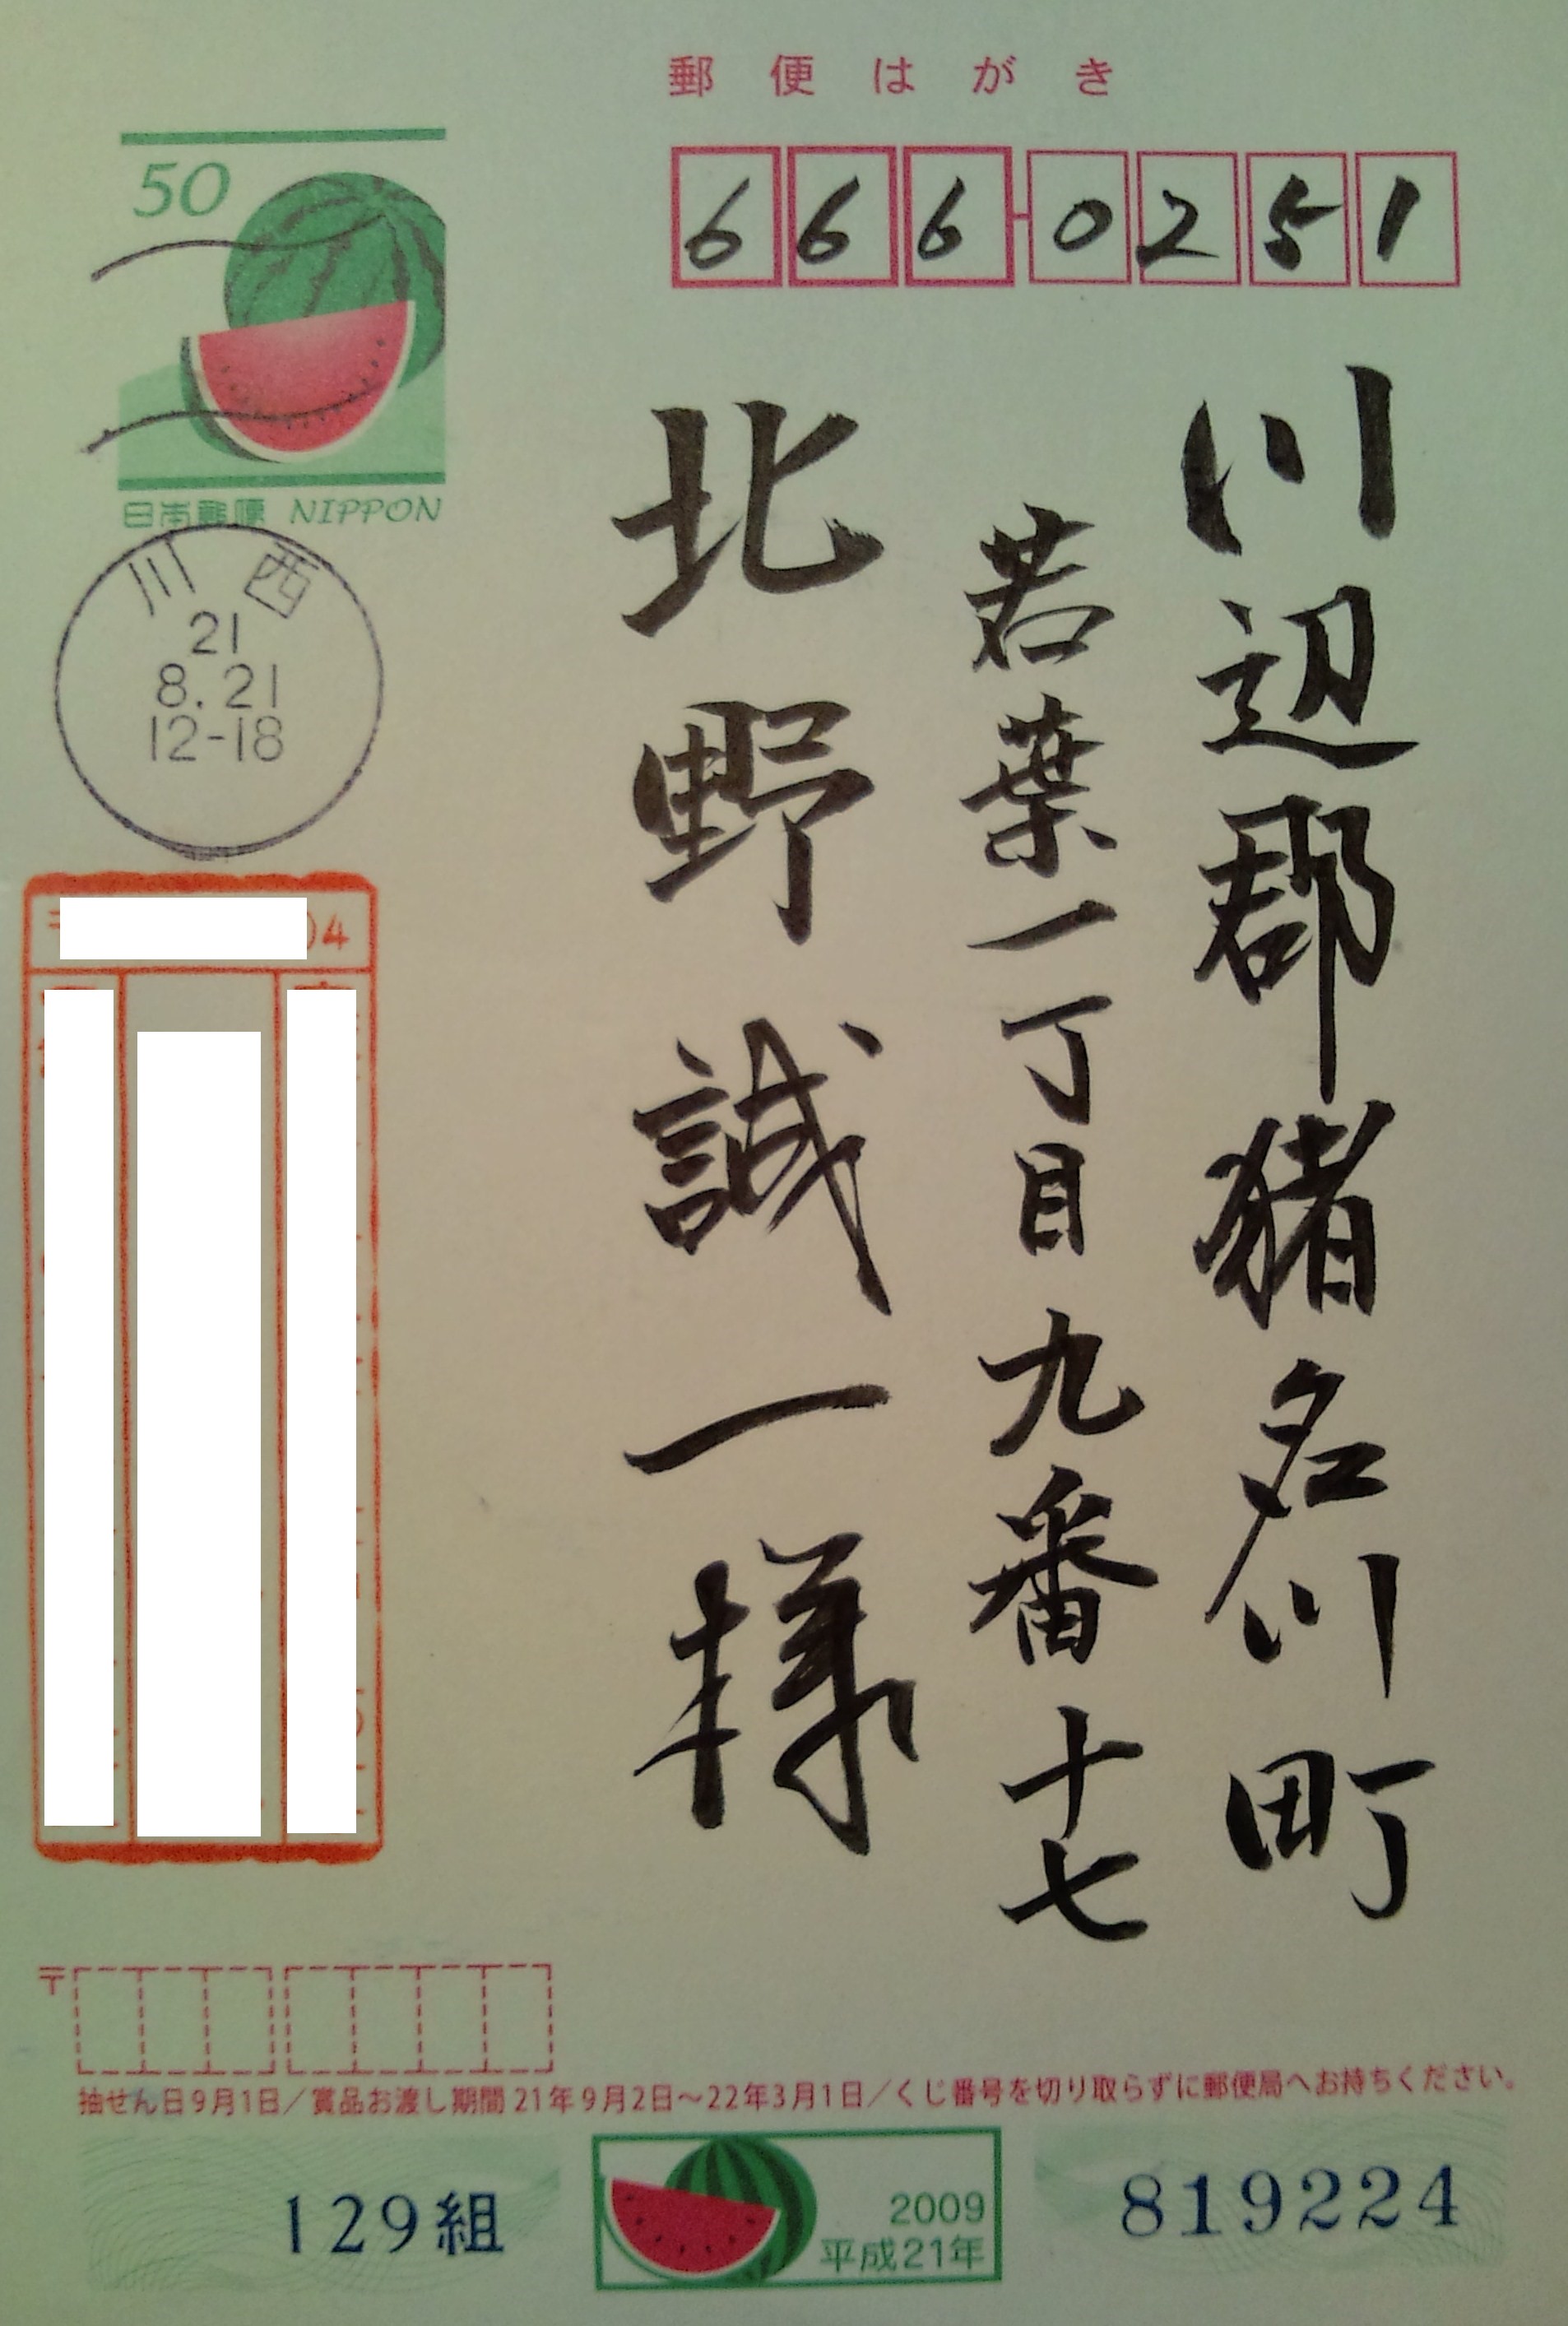 郵便はがき
666-0251
川辺郡猪名川町
若葉一丁目九番十七
北野誠一様
50
日本郵便 NIPPON
川西
21
8.21
12-18
〒
抽せん日9月1日/賞品お渡し期間21年9月2日~22年3月1日/くじ番号を切り取らずに郵便局へお持ちください。
129組
2009
平成21年
819224